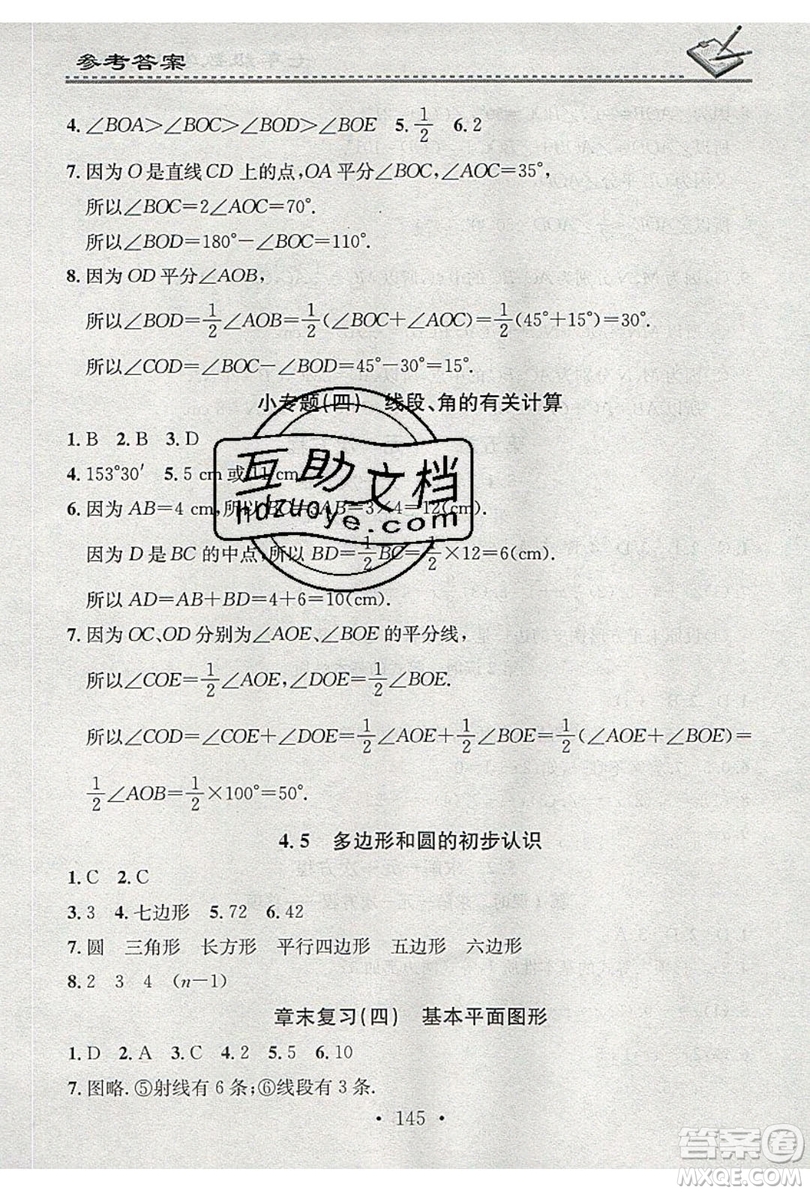 参考答案
4.∠BOA>∠BOC>∠BOD>∠BOE 5.1/2 6.2
7.因为O是直线CD上的点,OA平分∠BOC,∠AOC=35°,
所以∠BOC=2∠AOC=70°.
所以∠BOD=180°-∠BOC=110°.
8.因为OD平分∠AOB,
所以∠BOD=1/2∠AOB=1/2(∠BOC+∠AOC)=1/2(45°+15°)=30°.
所以∠COD=∠BOC-∠BOD=45°-30°=15°.
小专题(四) 线段、角的有关计算
1.B 2.B 3.D
4.153°30′ 5.5 cm或11 cm
6.因为AB=4 cm,所以BC=3AB=3×4=12(cm).
因为D是BC的中点,所以BD=1/2BC=1/2×12=6(cm).
所以AD=AB+BD=4+6=10(cm).
7.因为OC、OD分别为∠AOE、∠BOE的平分线,
所以∠COE=1/2∠AOE,∠DOE=1/2∠BOE.
所以∠COD=∠COE+∠DOE=1/2∠AOE+1/2∠BOE=1/2(∠AOE+∠BOE)=
1/2∠AOB=1/2×100°=50°.
4.5 多边形和圆的初步认识
1.C 2.C
3.3 4.七边形 5.72 6.42
7.圆 三角形 长方形 平行四边形 五边形 六边形
8.2 3 4 (n-1)
章末复习(四) 基本平面图形
1.D 2.A 3.C 4.2 5.5 6.10
7.图略.⑤射线有6条;⑥线段有3条.
·145·
互助文档
hdzuoye.com
答案圈
MXQE.COM